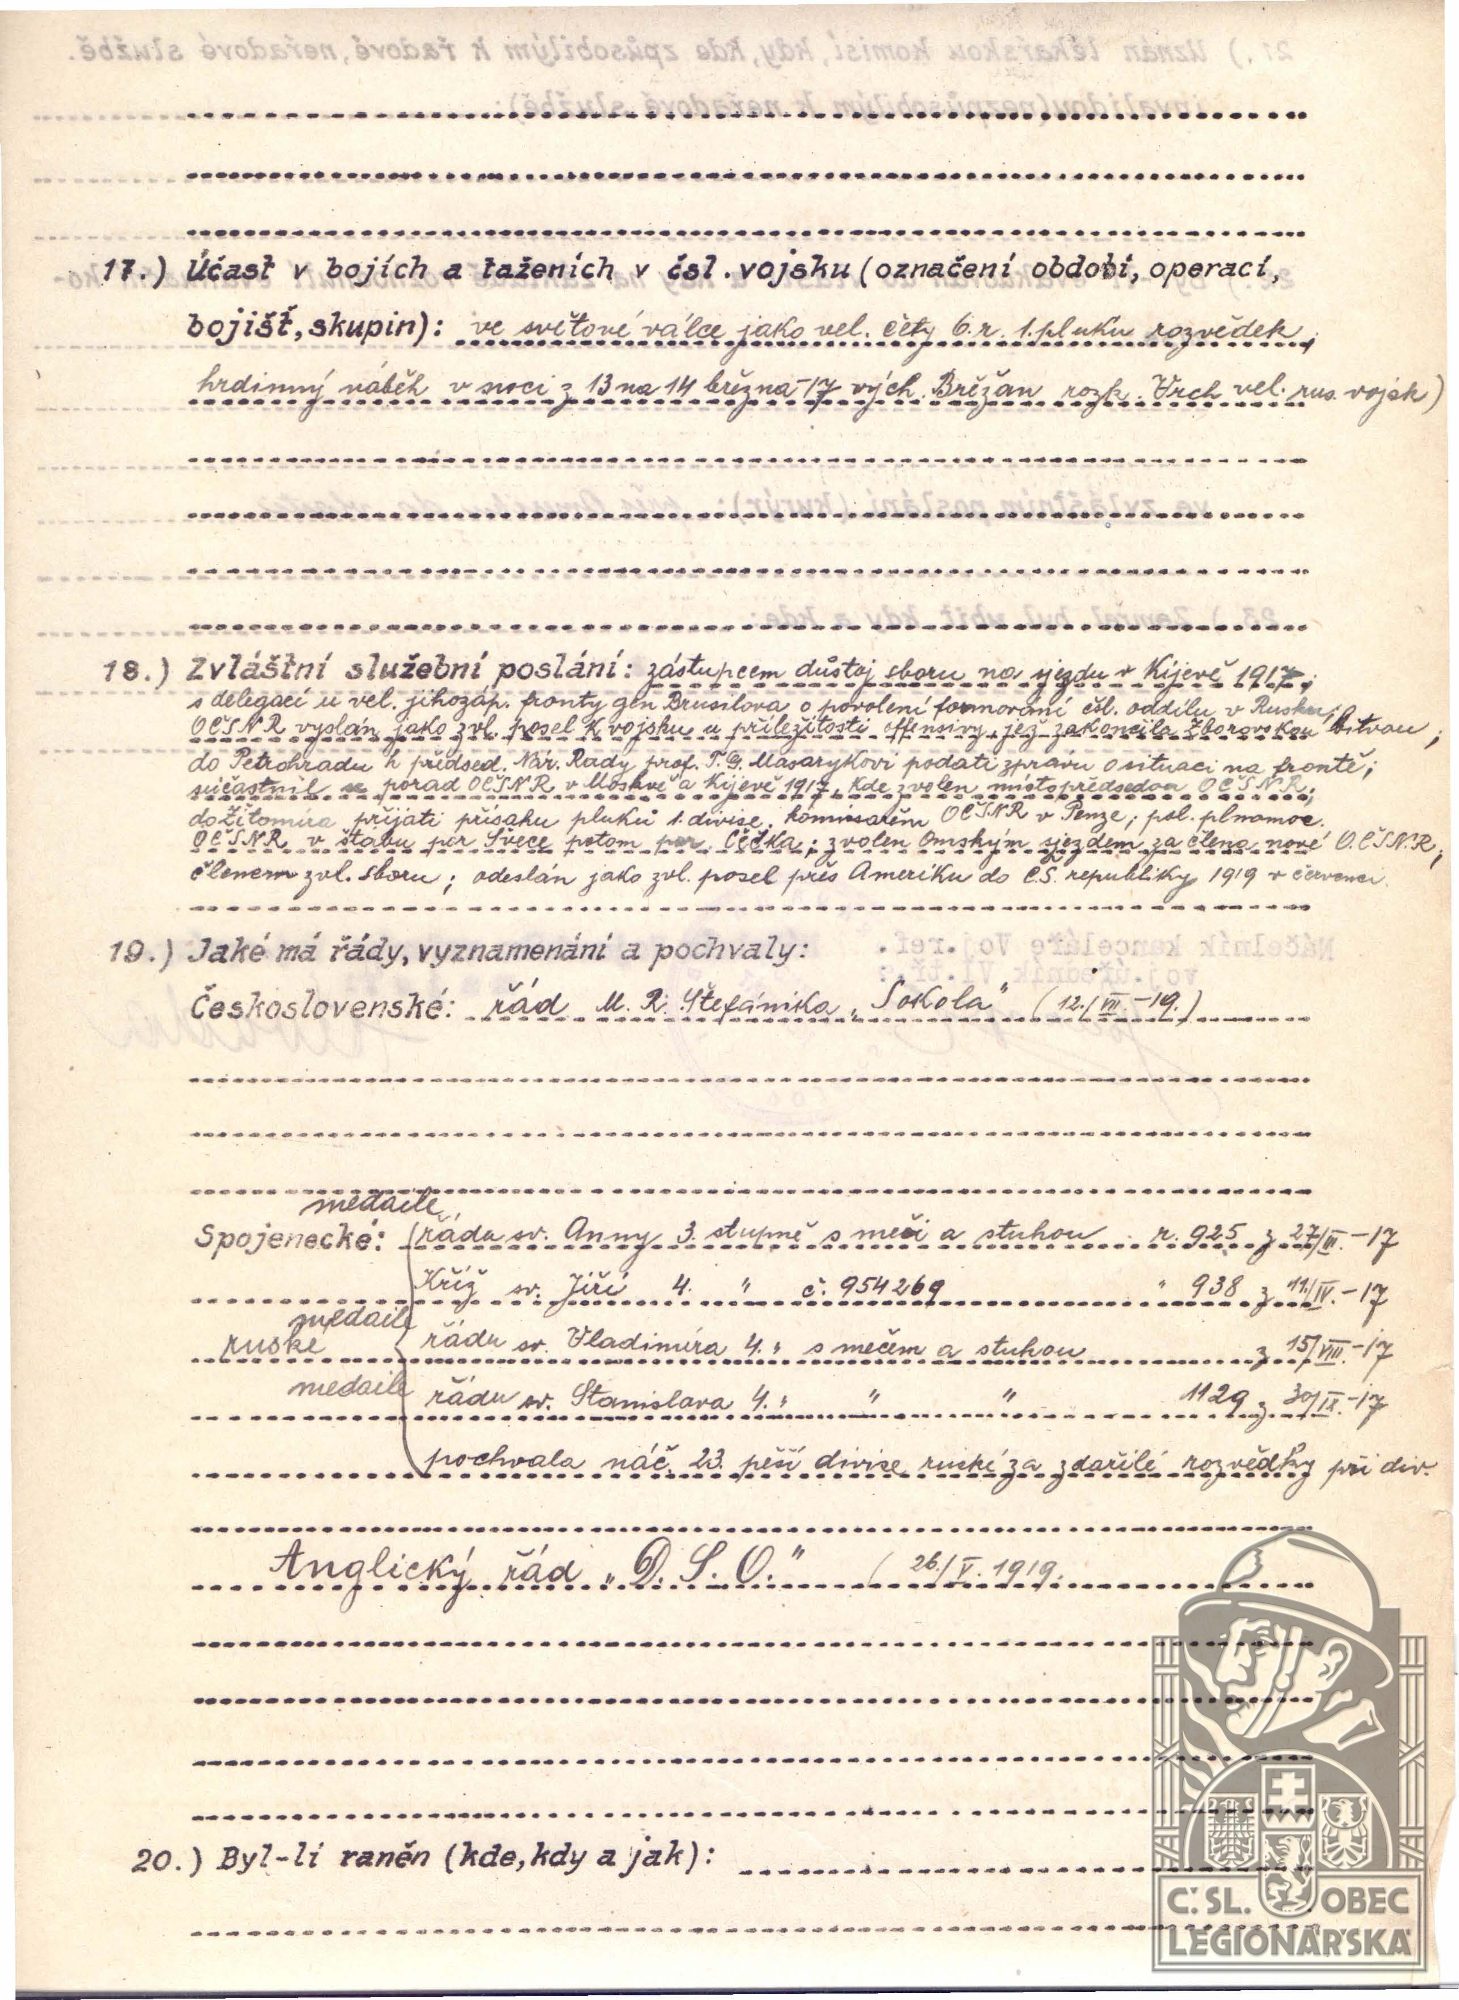 17.) Účast v bojích a taženích v čsl. vojsku (označení období, operací,
bojišť, skupin): ve světové válce jako vel. čety 6. r. 1. pluku rozvědek,
hrdinný náběh v noci z 13 na 14 března -17 vých. Břěžan rozk. Vrch vel. rus. vojsk)
18.) Zvláštní služební poslání: zástupcem důstoj sboru na sjezdu v Kijevě 1917;
s delegací u vel. jihozáp. fronty gen Brusilova o povolení formování čsl. oddílu v Rusku;
OČSNR vyslán jako zvl. posel k vojsku u příležitosti offensivy jež zakončila Zborovskou bitvou;
do Petrohradu k předsed. Nár. Rady prof. T. G. Masarykovi podati zprávu o situaci na frontě;
súčastnil se porad OČSNR v Moskvě a Kijevě 1917, kde zvolen místopředsedou OČSNR;
do Žitomira přijati přísahu pluků 1. divise. komisařem OČSNR v Penze; pol. plnomoc.
OČSNR v štábu por Švece potom por. Čečka; zvolen Omským sjezdem za člena nové O.ČSN.R;
členem zvl. sboru; odeslán jako zvl. posel přes Ameriku do Č.S. republiky 1919 v červenci.
19.) Jaké má řády, vyznamenání a pochvaly:
Československé: řád M. R. Štefánika „Sokola" (12./VII. -19.)
medaile
Spojenecké: řádu sv. Anny 3. stupně s meči a stuhou r. 925 z 27/III. -17
Kříž sv. Jiří 4. " č. 954269 " 938 z 11/IV. -17
medaile
ruské řádu sv. Vladimíra 4. " s mečem a stuhou z 15/VIII. -17
medaile řádu sv. Stanislava 4. " " " 1129 z 30/IX. -17
pochvala náč. 23. pěší divise ruské za zdařilé rozvědky při div.
Anglický řád „D. S. O." (26./V. 1919.
20.) Byl-li raněn (kde, kdy a jak):
Č. SL. OBEC
LEGIONÁŘSKÁ